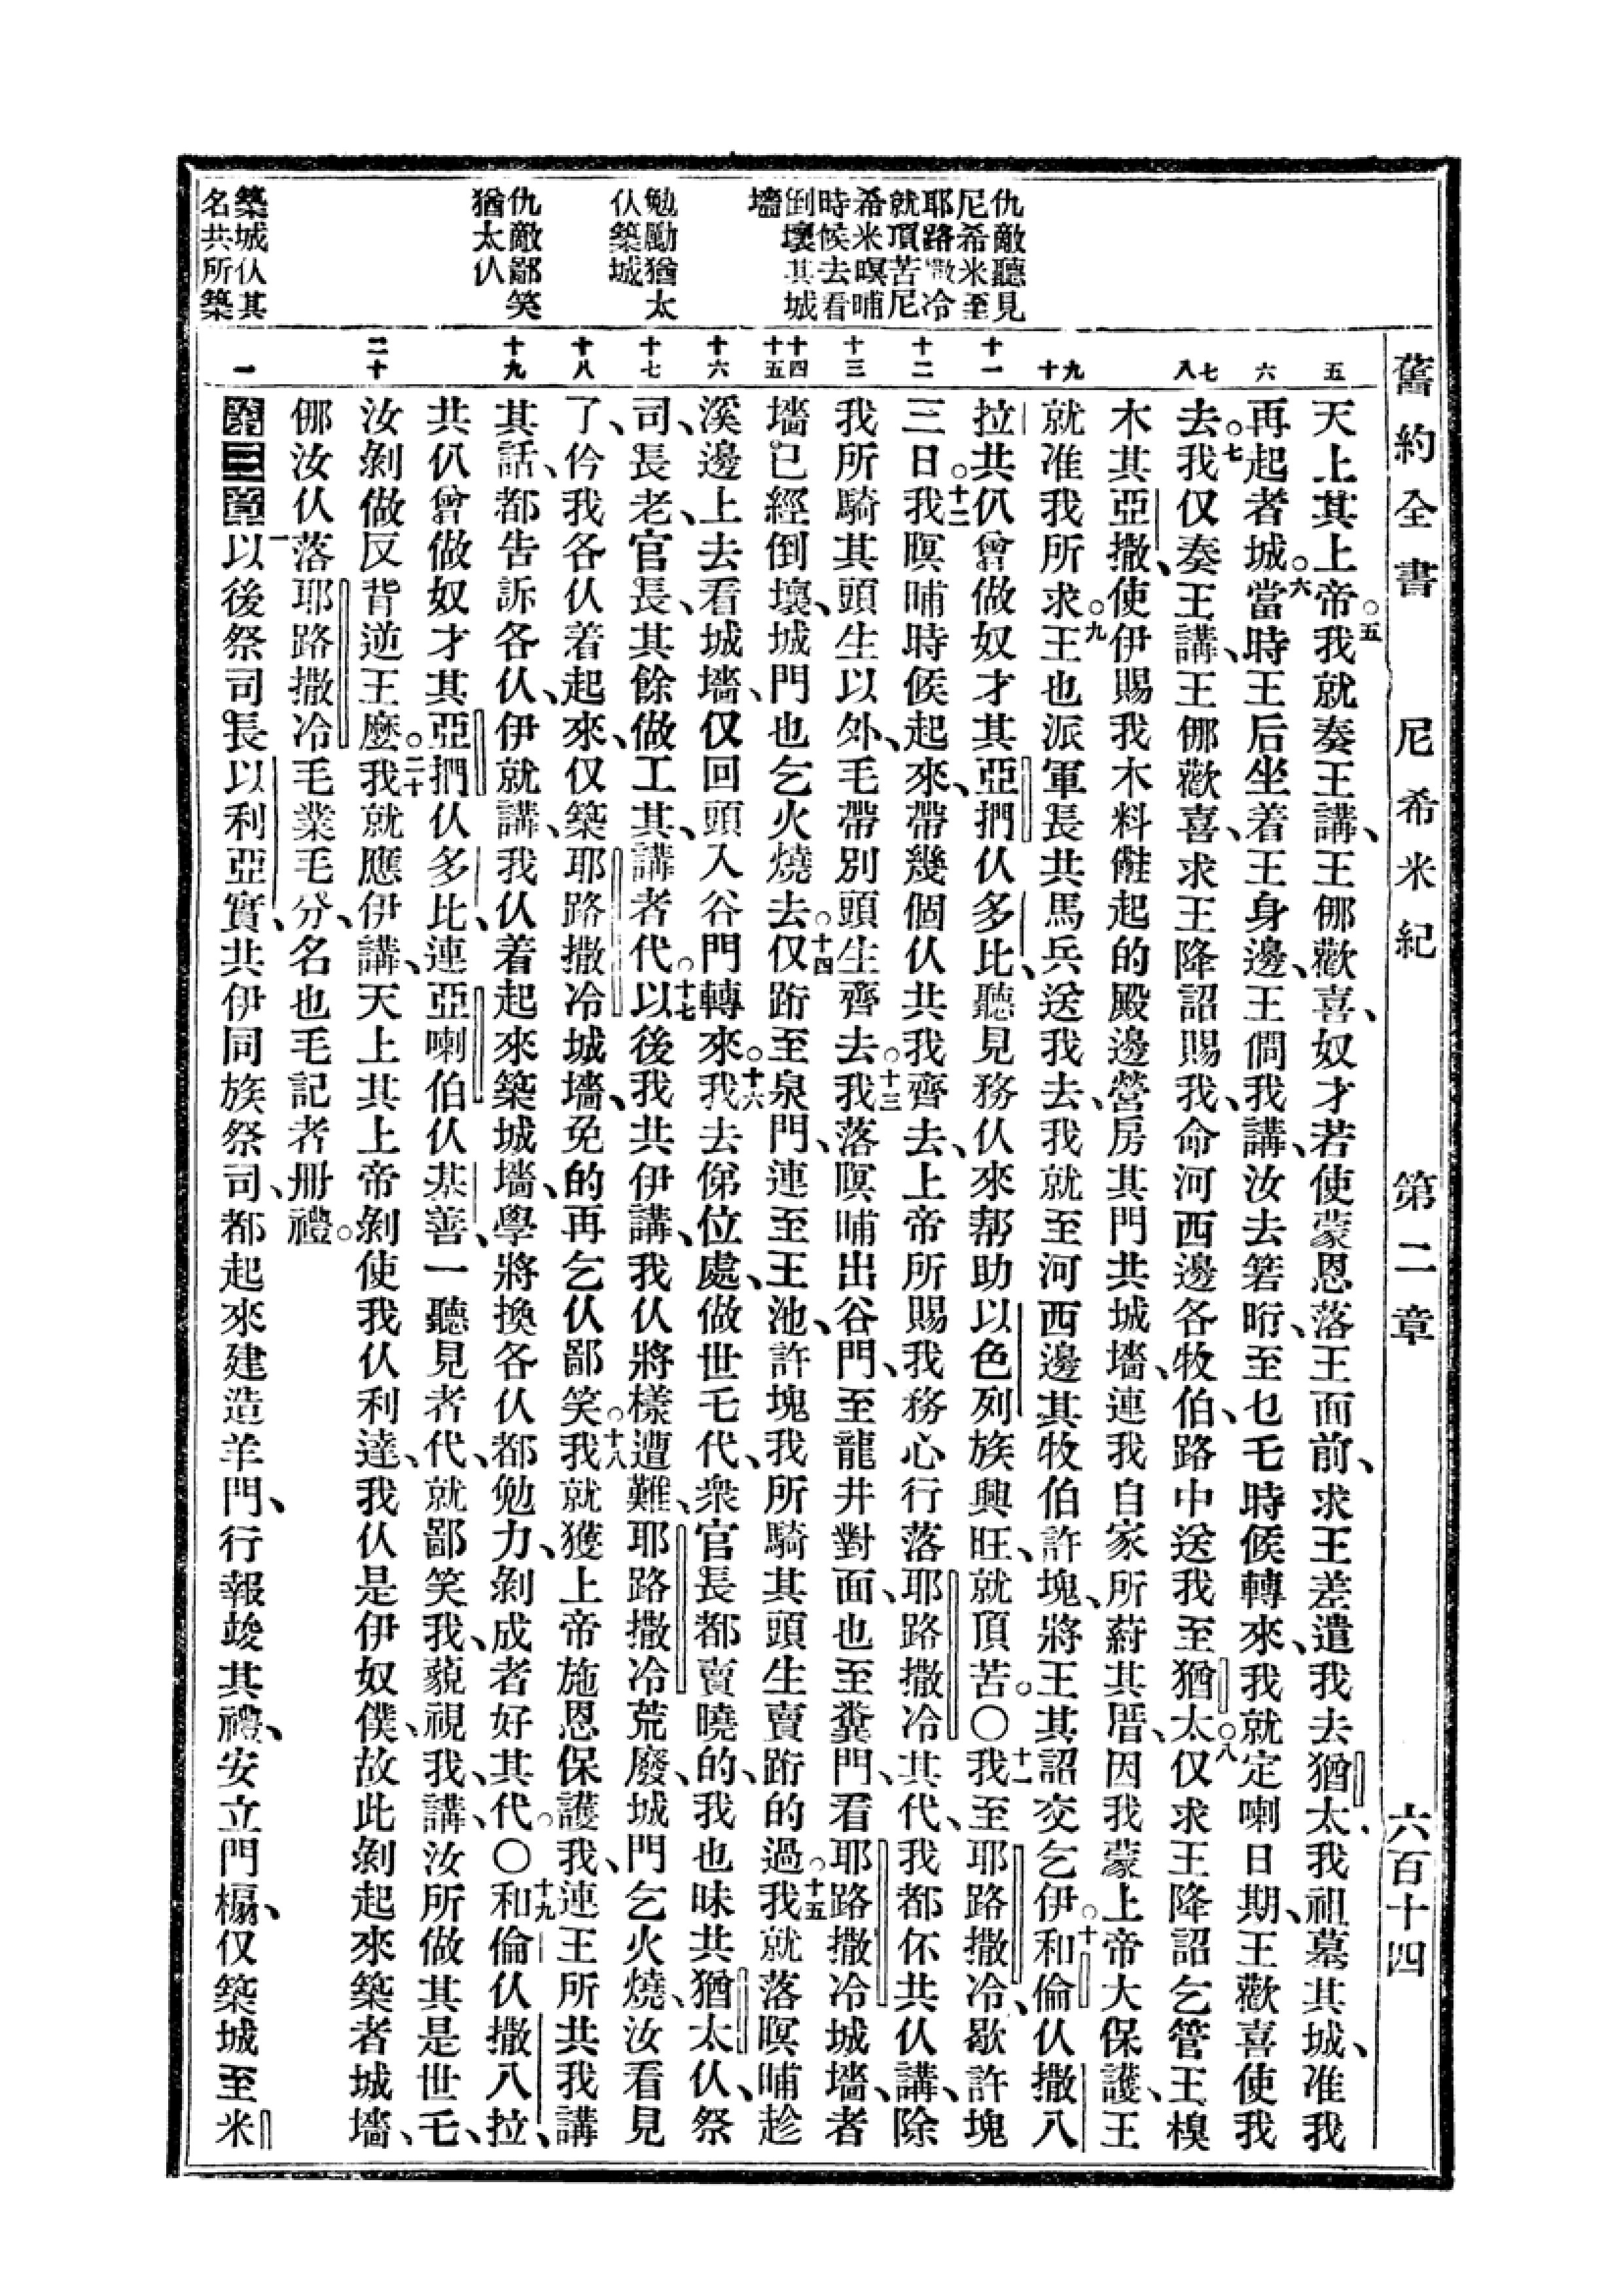 舊約全書 尼希米紀 第二章 六百十四
仇敵聽見
尼希米至
耶路撒冷
就頂苦尼
希米暝晡
時候去看
倒壞其城
墻
勉勵猶太
仈築城
仇敵鄙笑
猶太仈
築城仈其
名共所築
五 六 七 八 九 十 十一 十二 十三 十四 十五 十六 十七 十八 十九 二十 一
天上其上帝。五我就奏王講、王倻歡喜、奴才若使蒙恩落王面前、求王差遣我去猶太、我祖墓其城、准我
再起者城。六當時王后坐着王身邊、王僩我講、汝去箬𣍐、至乜乇時候轉來、我就定喇日期、王歡喜使我
去。七我仅奏王講、王倻歡喜、求王降詔賜我、命河西邊各牧伯、路中送我至猶太。八仅求王降詔乞管王樕
木其亞撒、使伊賜我木料、起的殿邊營房其門共城墻、連我自家所蒔其厝、因我蒙上帝大保護、王
就准我所求。九王也派軍長共馬兵送我去、我就至河西邊其牧伯許塊、將王其詔交乞伊。十和倫仈撒八
拉共仈曾做奴才其亞捫仈多比、聽見務仈來幇助以色列族興旺、就頂苦。〇十一我至耶路撒冷、歇許塊
三日。十二我暝晡時候起來、帶幾個仈共我齊去、上帝所賜我務心行落耶路撒冷其代、我都伓共仈講、除
我所騎其頭生以外、毛帶別頭生齊去。十三我落暝晡出谷門、至龍井對面、也至糞門、看耶路撒冷城墻者
墻已經倒壞、城門也乞火燒去。十四仅跔至泉門、連至王池、許塊我所騎其頭生賣跔的過。十五我就落暝晡趁
溪邊上去看城墻、仅回頭入谷門轉來。十六我去俤位處、做世乇代、衆官長都賣曉的、我也昧共猶太仈、祭
司、長老、官長、其餘做工其、講者代。十七以後我共伊講、我仈將樣遭難、耶路撒冷荒廢、城門乞火燒、汝看見
了、仱我各仈着起來、仅築耶路撒冷城墻、免的再乞仈鄙笑。十八我就獲上帝施恩保護我、連王所共我講
其話、都告訴各仈、伊就講、我仈着起來築城墻、學將換各仈都勉力、剝成者好其代。〇十九和倫仈撒八拉、
共仈曾做奴才其亞捫仈多比、連亞喇伯仈基善、一聽見者代、就鄙笑我、藐視我、講、汝所做其是世乇、
汝剝做反背逆王麼。二十我就應伊講、天上其上帝剝使我仈利達、我仈是伊奴僕、故此剝起來築者城墻、
倻汝仈落耶路撒冷毛業毛分、名也毛記者册禮。
第三章 一以後祭司長以利亞實、共伊同族祭司、都起來建造羊門、行報竣其禮、安立門榻、仅築城至米